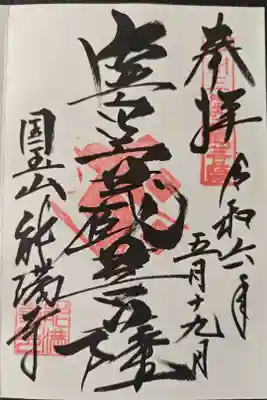 奉拝
令和六年
五月十九日
虚空蔵菩薩
国玉山能満寺